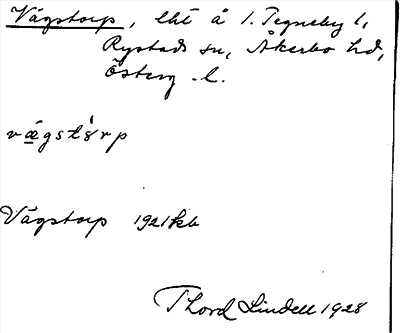 Vägstorp, lht å 1. Tegneby 1,
Rystads sn, Åkerbo hd,
Österg. l.
vägstórp
Vägstorp 1921 kb
Thord Lindell 1928